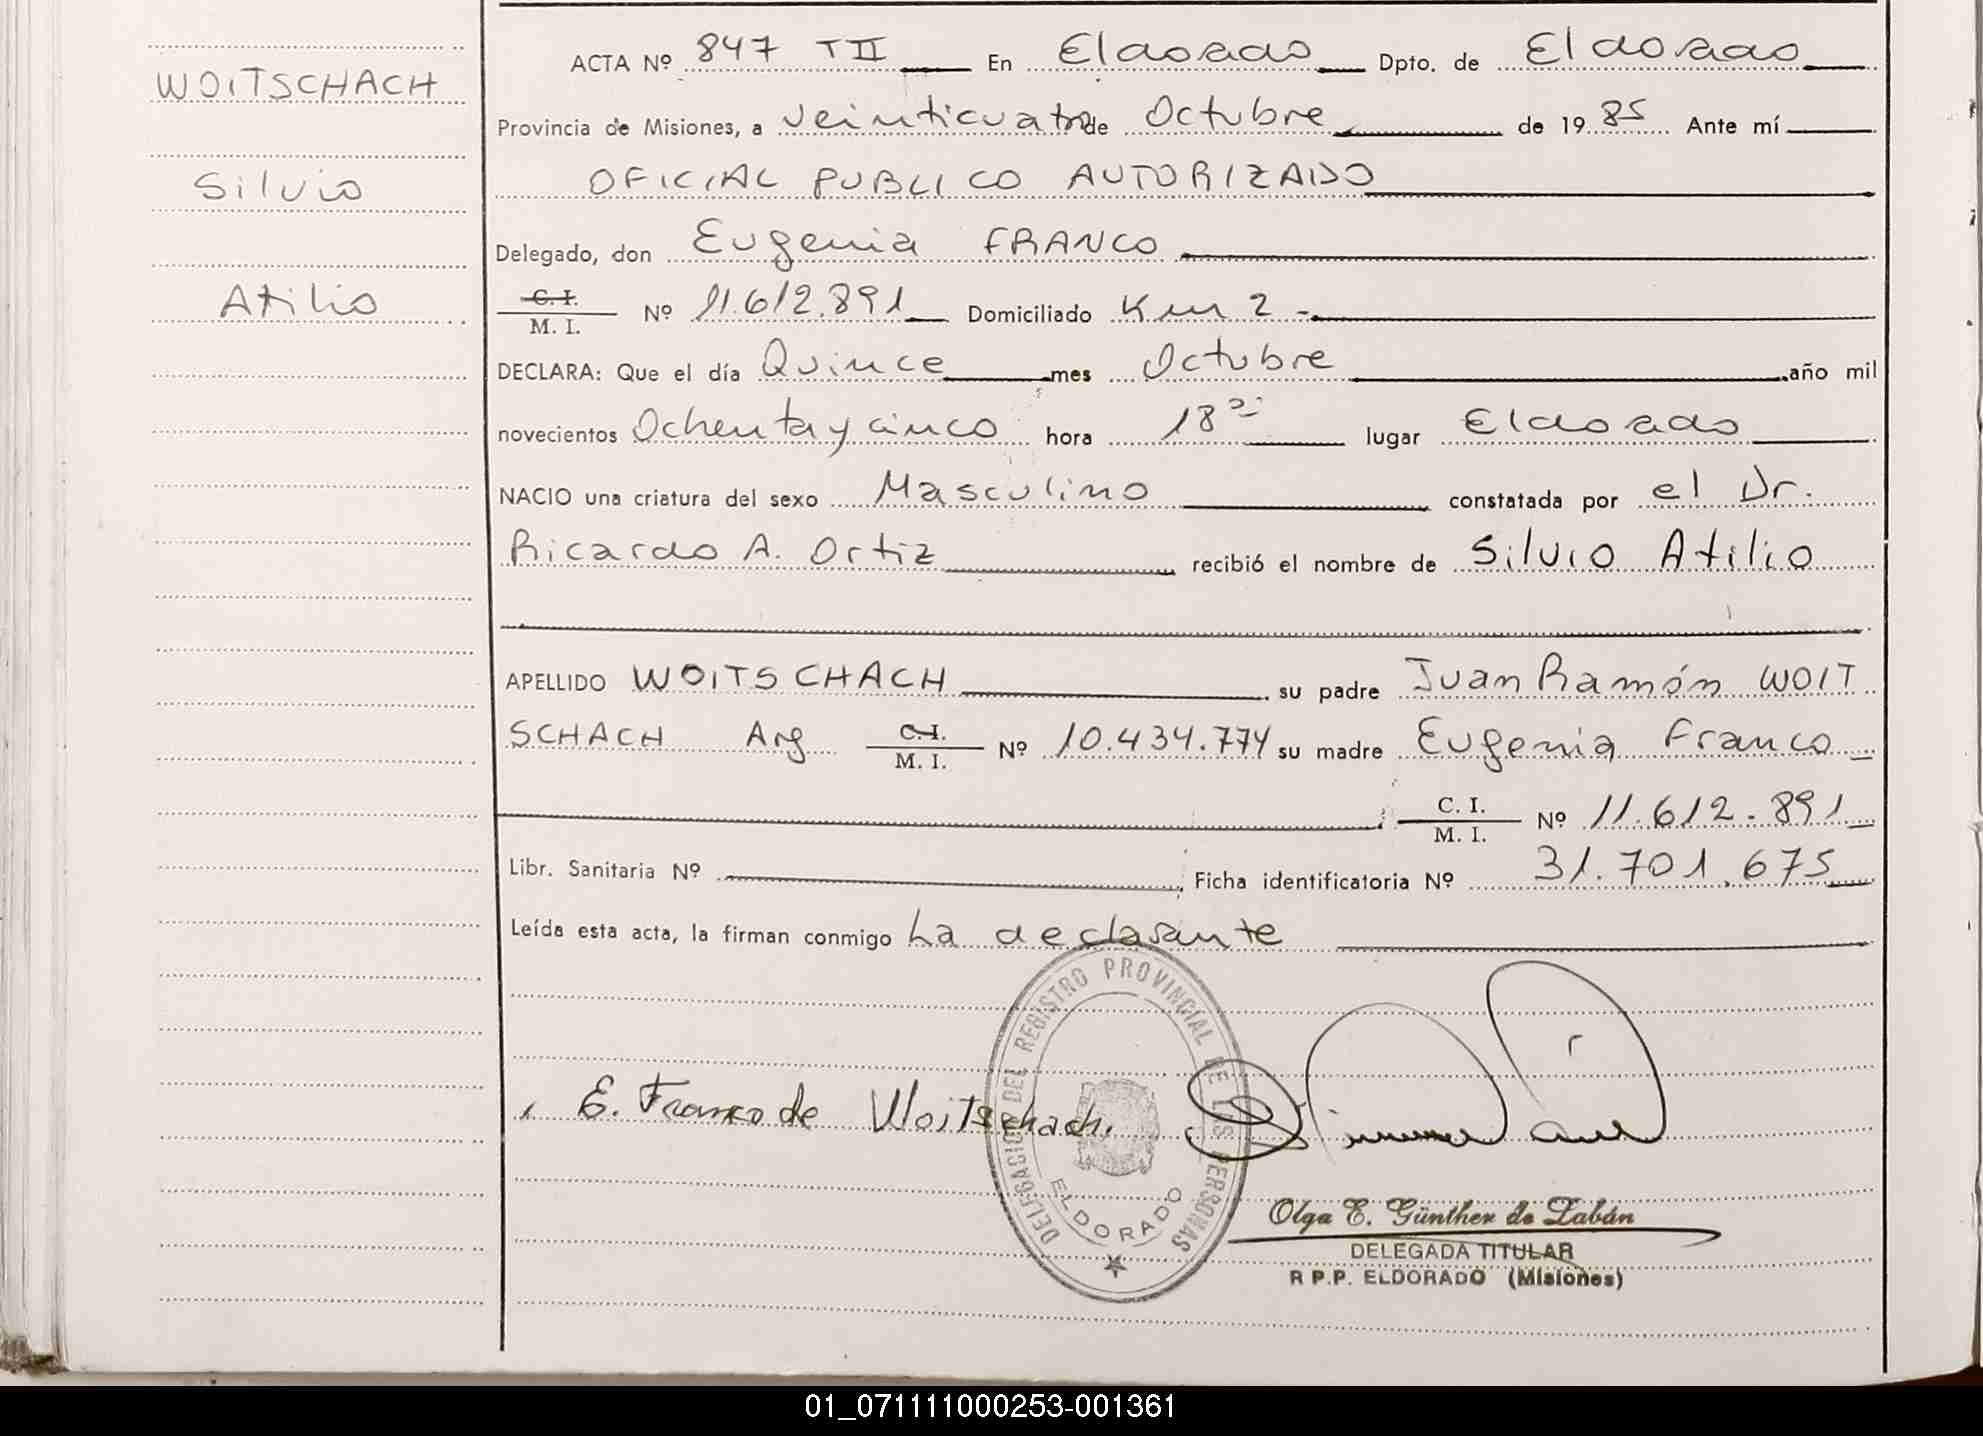 WOITSCHACH
Silvio
Atilio
ACTA Nº 847 TII En Eldorado Dpto. de Eldorado
Provincia de Misiones, a veinticuatro de Octubre de 1985 Ante mí
OFICIAL PUBLICO AUTORIZADO
Delegado, don Eugenia FRANCO
C. I.
M. I. Nº 11.612.891 Domiciliado Km 2 -
DECLARA: Que el día Quince mes Octubre año mil
novecientos Ochenta y cinco hora 18 lugar Eldorado
NACIO una criatura del sexo Masculino constatada por el Dr.
Ricardo A. Ortiz recibió el nombre de Silvio Atilio
APELLIDO WOITSCHACH su padre Juan Ramón WOIT
SCHACH Arg C. I. M. I. Nº 10.434.774 su madre Eugenia Franco
C. I.
M. I. Nº 11.612.891
Libr. Sanitaria Nº Ficha identificatoria Nº 31.701.675
Leída esta acta, la firman conmigo La declarante
DELEGACION DEL REGISTRO PROVINCIAL DE LAS PERSONAS
ELDORADO
E. Franco de Woitschach.
Olga E. Günther de Zabán
DELEGADA TITULAR
R P.P. ELDORADO (Misiones)
01_071111000253-001361